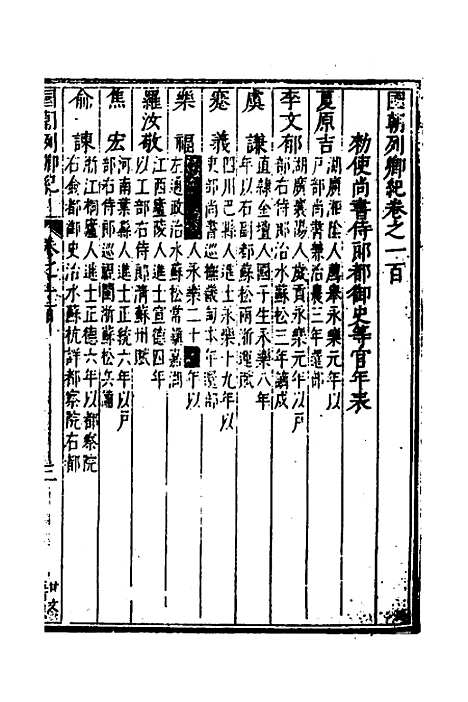 國朝列卿紀卷之一百
勑使尚書侍郎都御史等官年表
夏原吉
湖廣湘陰人薦舉永樂元年以
戶部尚書兼治農三年還部
李文郁
湖廣襄陽人歲貢永樂元年以戶
部右侍郎治水蘇松三年謫戍
虞謙
直隸金壇人國子生永樂八年
年以右副都蘇松兩浙運賦
蹇義
四川巴縣人進士永樂十九年以
吏部尚書巡撫畿甸本年還部
樂福
人永樂二十 年以
左通政治水蘇松常鎮嘉湖
羅汝敬
江西廬陵人進士宣德四年
以工部右侍郎清蘇州賦
焦宏
河南葉縣人進士正統六年以戶
部右侍郎巡視閩浙蘇松兵備
俞諫
浙江桐廬人進士正德六年以都察院
右僉都御史治水蘇杭詳都察院右都
國朝列卿紀